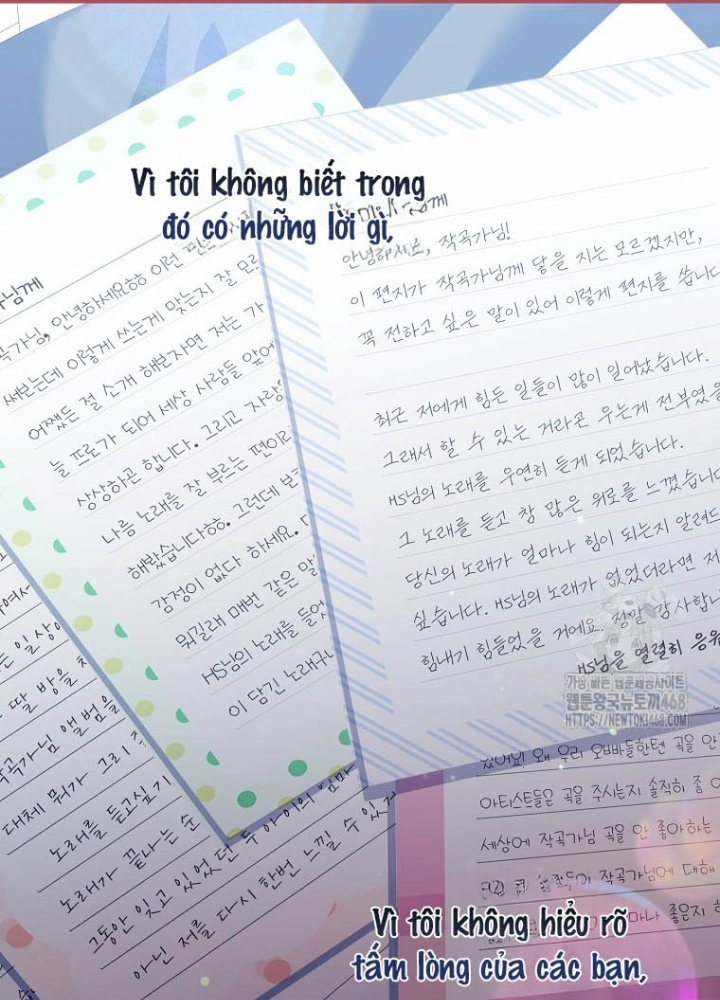 Vì tôi không biết trong
đó có những lời gì,
안녕하세요, 작곡가님!
이 편지가 작곡가님께 닿을 지는 모르겠지만,
꼭 전하고 싶은 말이 있어 이렇게 편지를 씁니다
최근 저에게 힘든 일들이 많이 일어났습니다.
그래서 할 수 있는 거라곤 우는게 전부였을
HS님의 노래를 우연히 듣게 되었습니다.
그 노래를 듣고 참 많은 위로를 느꼈습니다
당신의 노래가 얼마나 힘이 되는지 알려드
싶습니다. HS님의 노래가 없었더라면 저
힘내기 힘들었을 거예요. 정말 감사합니
HS님을 열렬히 응원
작곡가님, 안녕하세요ㅎㅎ 이런
써보는데 이렇게 쓰는게 맞는지 잘 모르
어쨌든 절 소개 해보자면 저는 가
늘 프로가 되어 세상 사람들 앞에
상상하곤 합니다. 그리고 자랑
나름 노래를 잘 부르는 편이라
해봤습니다ㅎㅎ. 그런데
감정이 없다 하세요.
뭐길래 매번 같은 말
HS님의 노래를 들었
이 담긴 노래구나
는 일상
딸 방을
작곡가님 앨범을
대체 뭐가 그리
노래를 듣고싶기
노래가 끝나는 순
그동안 잊고 있었던 두 아이의 엄마
아닌 저를 다시 한번 느낄 수 있
있어요! 왜 우리 오빠들한텐 곡을 안
아티스트들은 곡을 주시는지 솔직히 좀
세상에 작곡가님 곡을 안 좋아하는
작곡가님에 대해
얼마나 좋은지
가장 빠른 웹툰제공사이트
웹툰왕국뉴토끼468
HTTPS://NEWTOKI468
Vì tôi không hiểu rõ
tấm lòng của các bạn,